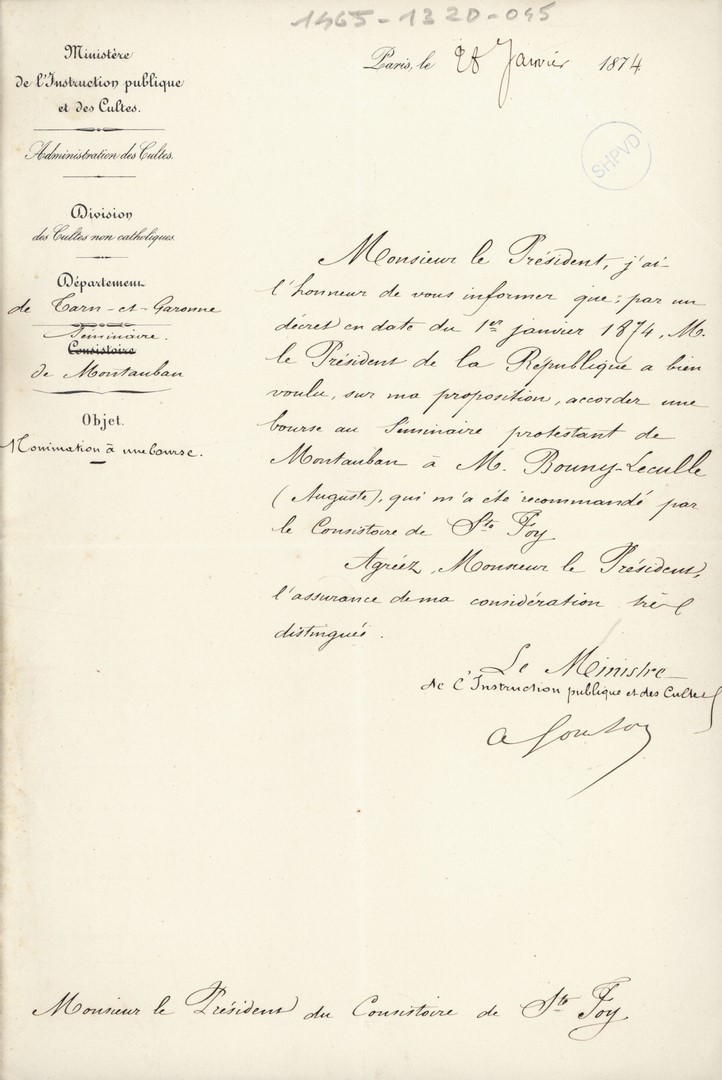 1465-132D-045
Ministère
de l'Instruction publique
et des Cultes.
Administration des Cultes.
Division
des Cultes non catholiques.
Département
de Tarn-et-Garonne
Séminaire.
Consistoire
de Montauban
Objet.
Nomination à une bourse.
Paris, le 28 Janvier 1874
SHPVD
Monsieur le Président, j'ai
l'honneur de vous informer que, par un
décret en date du 1er janvier 1874, M.
le Président de la République a bien
voulu, sur ma proposition, accorder une
bourse au Séminaire protestant de
Montauban à M. Bouny-Leculle
(Auguste), qui m'a été recommandé par
le Consistoire de Ste Foy
Agréez, Monsieur le Président,
l'assurance de ma considération très
distinguée.
Le Ministre
de l'Instruction publique et des Cultes
Monsieur le Président du Consistoire de Ste Foy